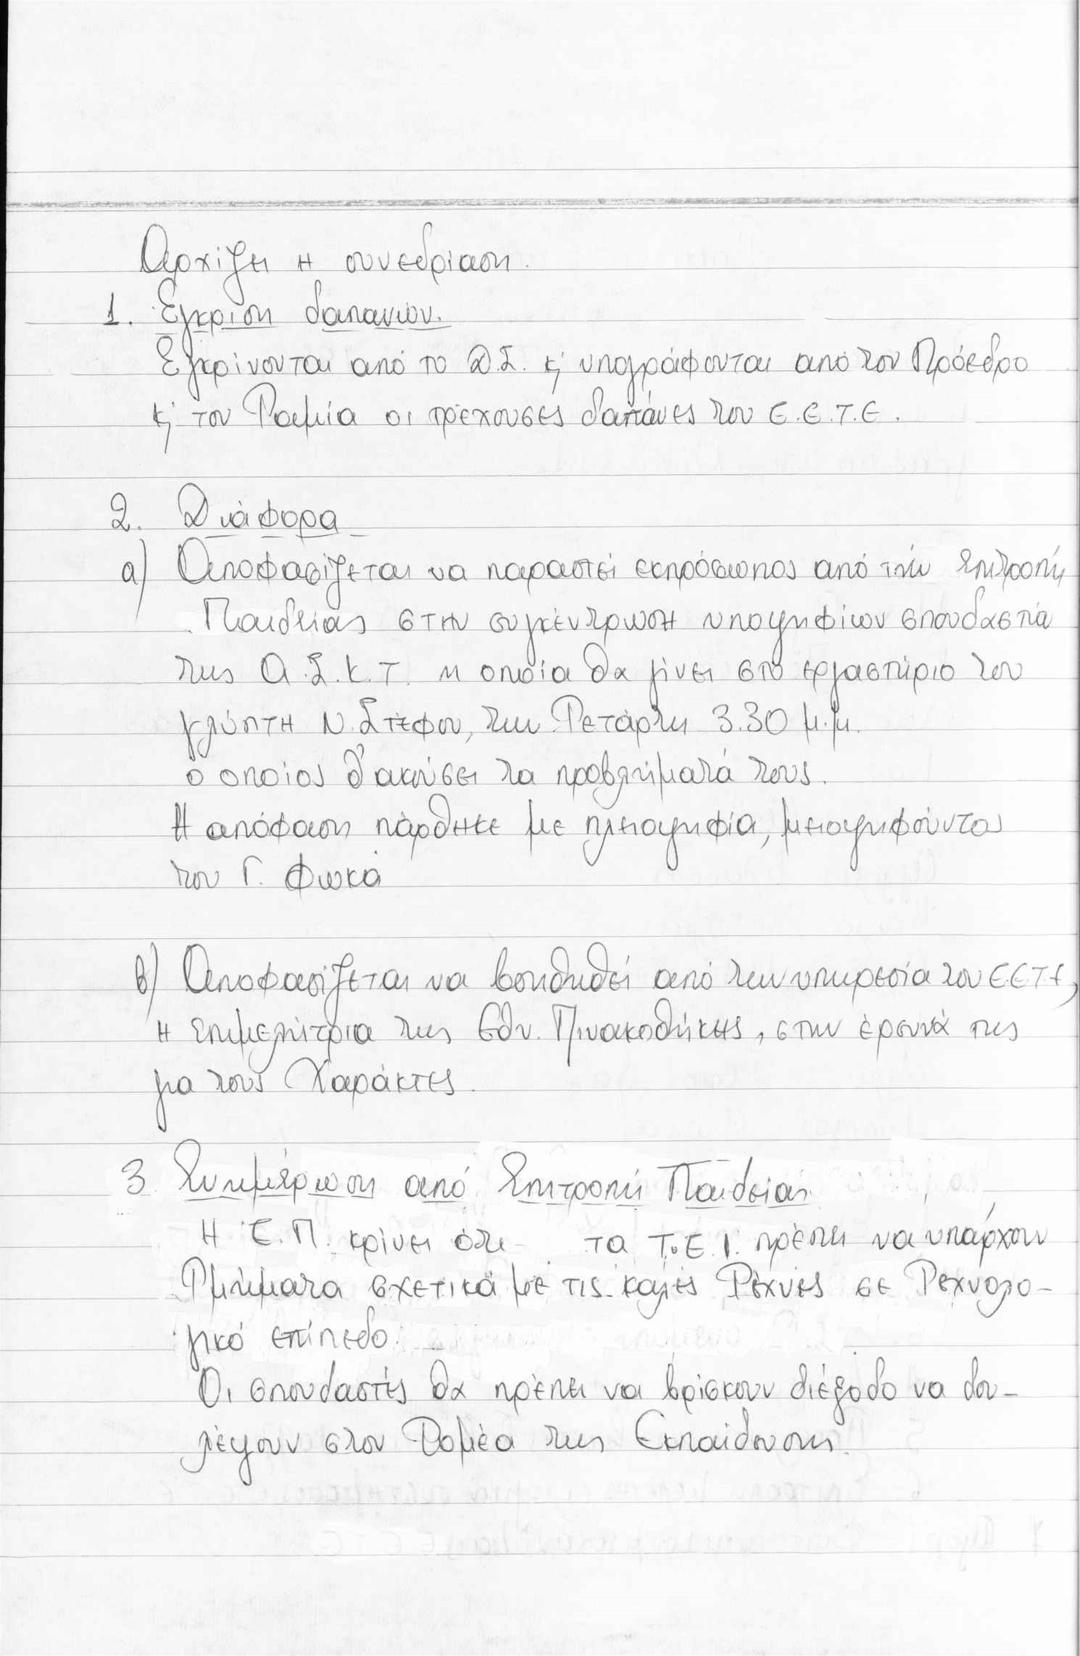 Αρχίζει η συνεδρίαση.
1. Έγκριση δαπανών.
Εγκρίνονται από το Δ.Σ. κ' υπογράφονται από τον Πρόεδρο
κ' τον Ταμία οι τρέχουσες δαπάνες του Ε.Ε.Τ.Ε.
2. Διάφορα
α) Αποφασίζεται να παραστεί εκπρόσωπος από την Επιτροπή
Παιδείας στην συγκέντρωση υποψηφίων σπουδαστών
της Α.Σ.Κ.Τ. η οποία θα γίνει στο εργαστήριο του
γλύπτη Ν. Στέφου, την Τετάρτη 3.30 μ.μ.
ο οποίος θ' ακούσει τα προβλήματά τους.
Η απόφαση πάρθηκε με πλειοψηφία, μειοψηφούντος
του Γ. Φωκά
β) Αποφασίζεται να βοηθηθεί από την υπηρεσία του ΕΕΤΕ,
η επιμελήτρια της Εθν. Πινακοθήκης, στην έρευνά της
για τους Χαράκτες.
3 Ενημέρωση από Επιτροπή Παιδείας
Η Ε.Π. κρίνει ότι τα Τ.Ε.Ι. πρέπει να υπάρχουν
Τμήματα σχετικά με τις καλές Τέχνες σε Τεχνολο-
γικό επίπεδο.
Οι σπουδαστές θα πρέπει να βρίσκουν διέξοδο να δου-
λέψουν στον Τομέα της Εκπαίδευσης.